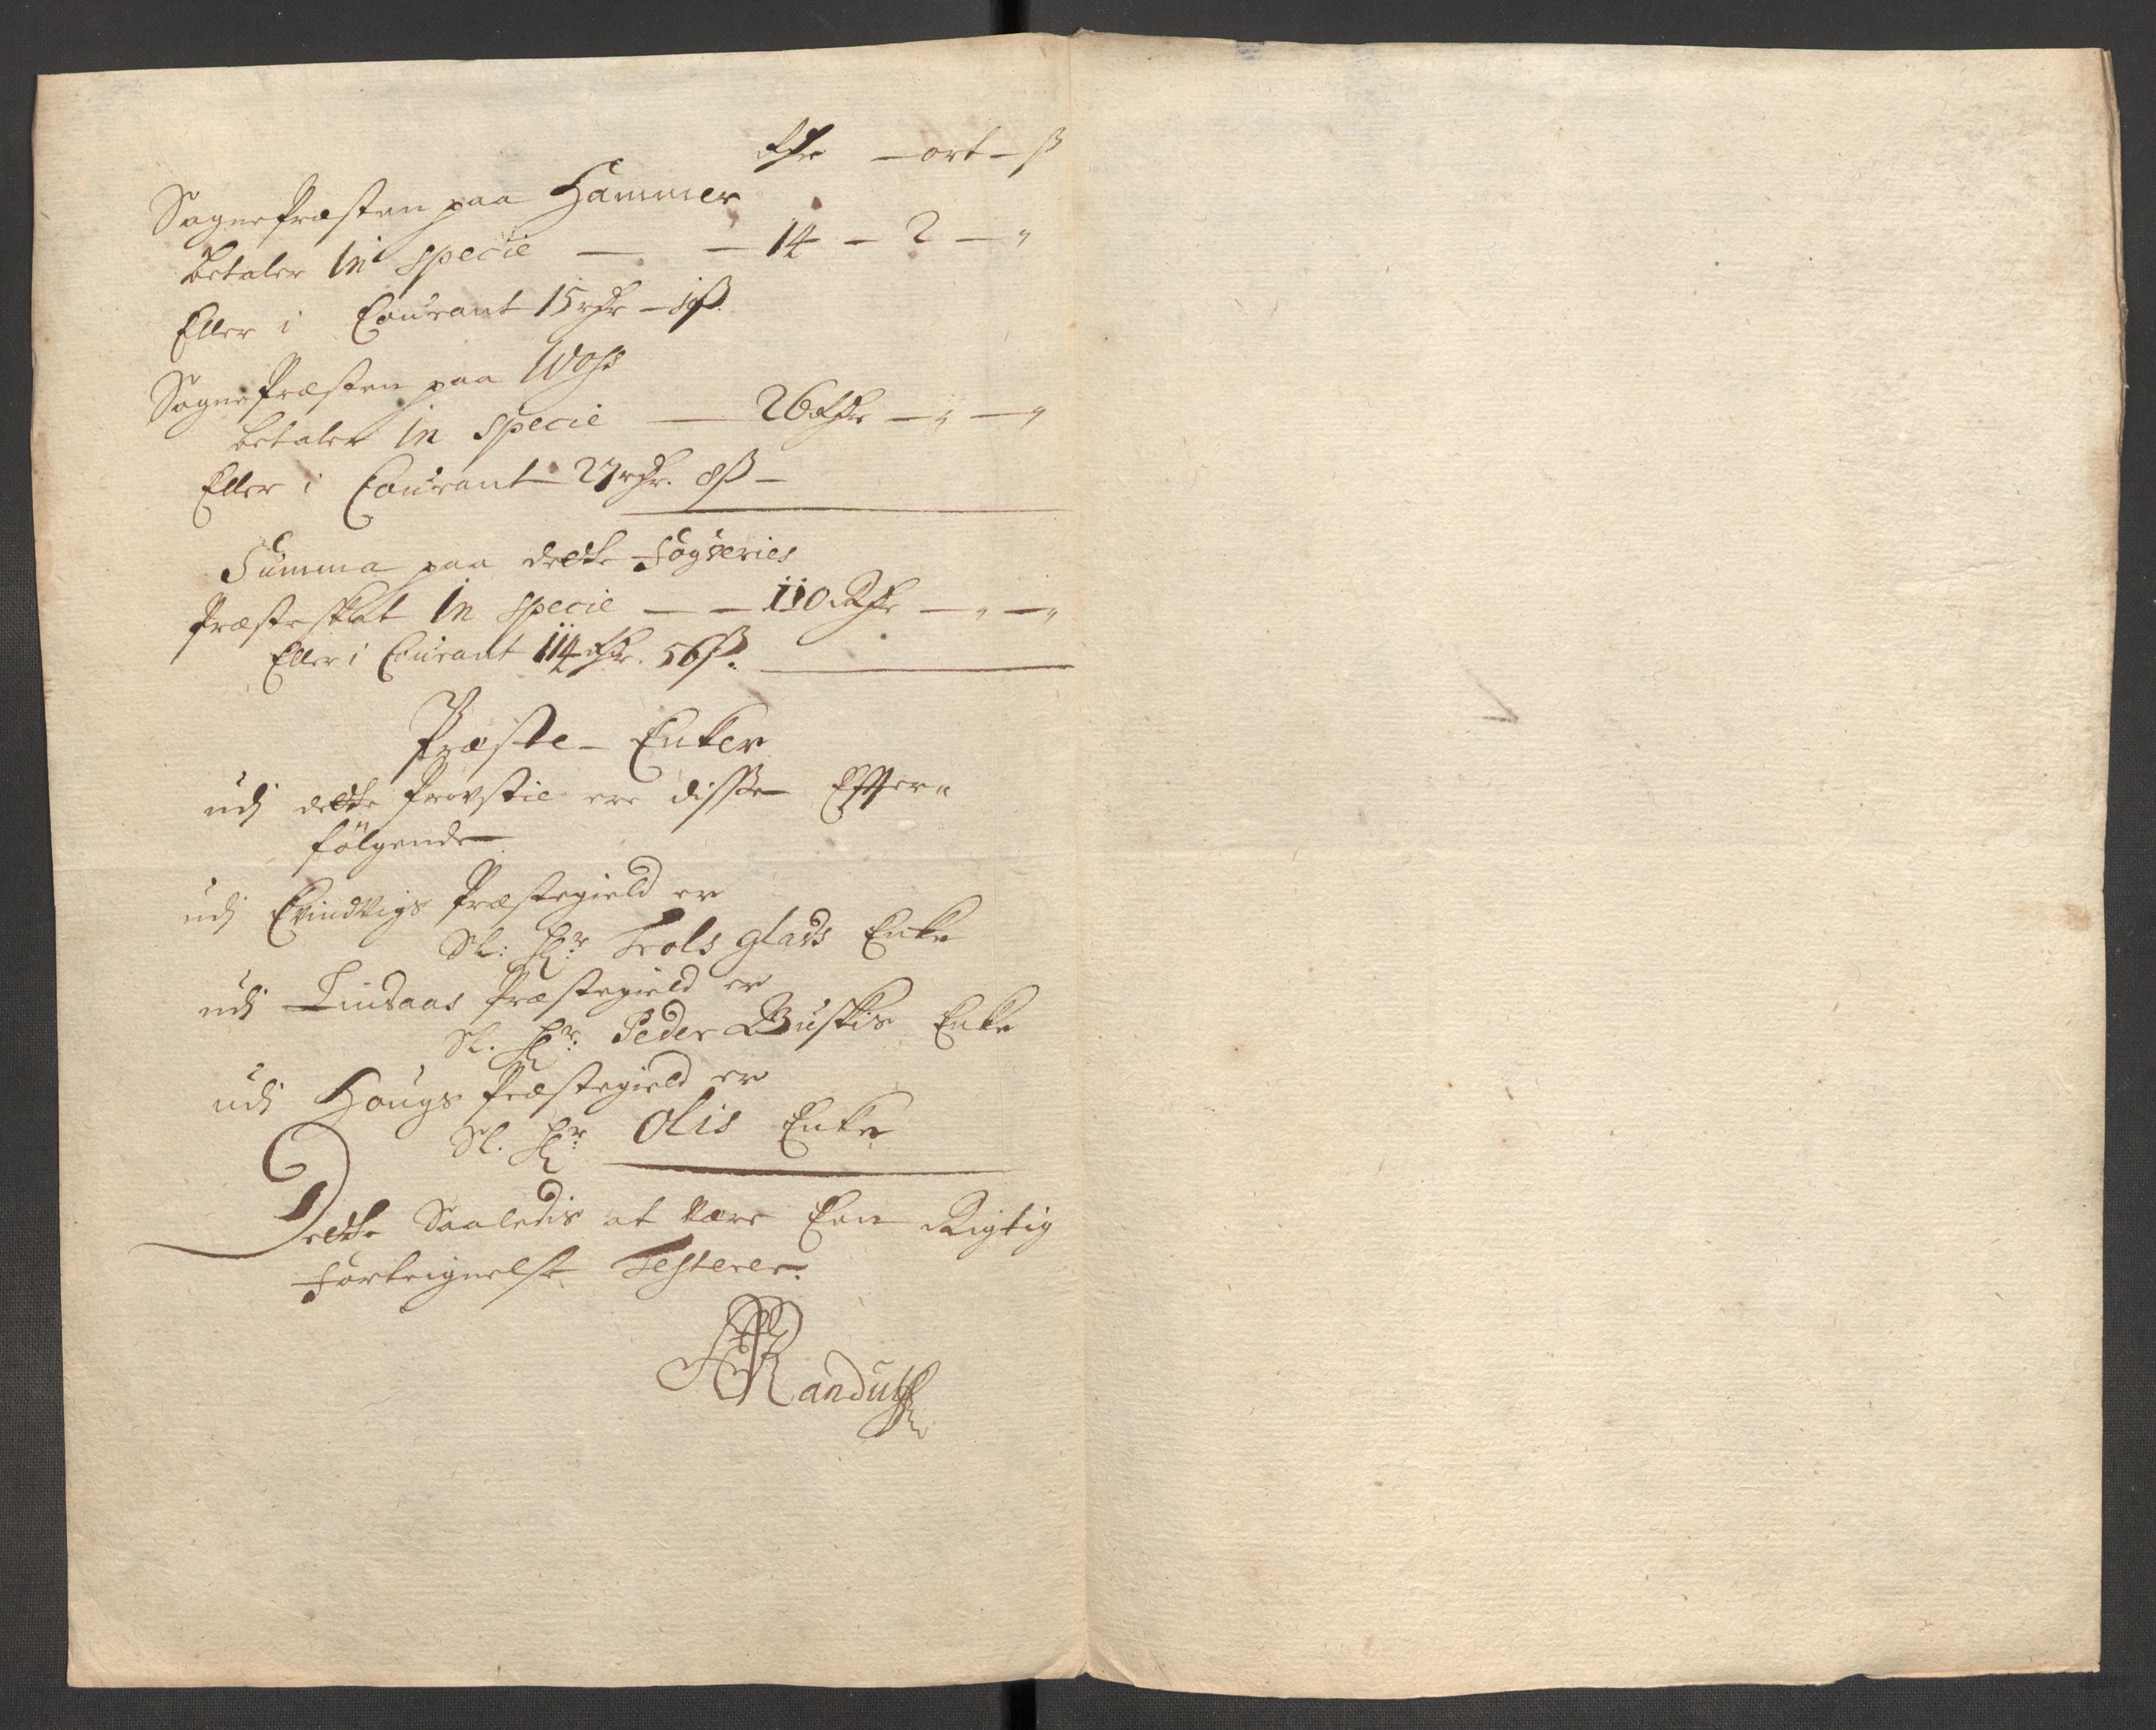 Rdr – ort – ß
Sognepræsten paa Hammer
betaler in specie — — 14 – 2 – "
Eller i Courant 15 rdr – 10 ß.
Sognepræsten paa Woss
betaler in specie — 26 Rdr – " – "
Eller i Courant 27 rdr. 8 ß –
Summa paa dette Fogderies
Præsteskat in specie — — 110 Rdr – " – "
Eller i Courant 114 Rdr. 56 ß.
Præste-Enker
udj dette Provstie ere disse Effter"
følgende
udj Evindvigs Præstegield er
Sl: Hr: Trols Glads Enke
udj Lindaas Præstegield er
Sl. Hr: Peder Buskis Enke
udj Hougs Præstegield er
Sl. Hr: Olis Enke
Dette Saaledis at være Een Rigtig
Forteignelse Testerer.
Randulff